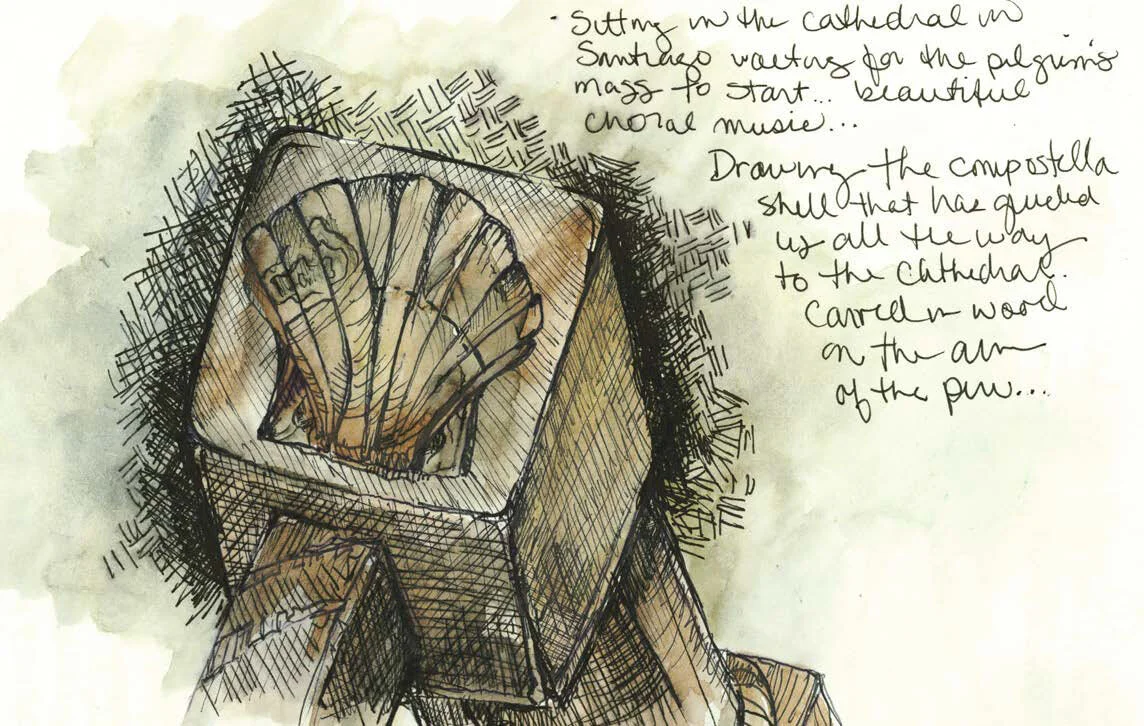 · Sitting in the cathedral in
Santiago waiting for the pilgrim's
mass to start... beautiful
choral music...
Drawing the compostella
shell that has guided
us all the way
to the Cathedral.
Carved in wood
on the arm
of the pew...